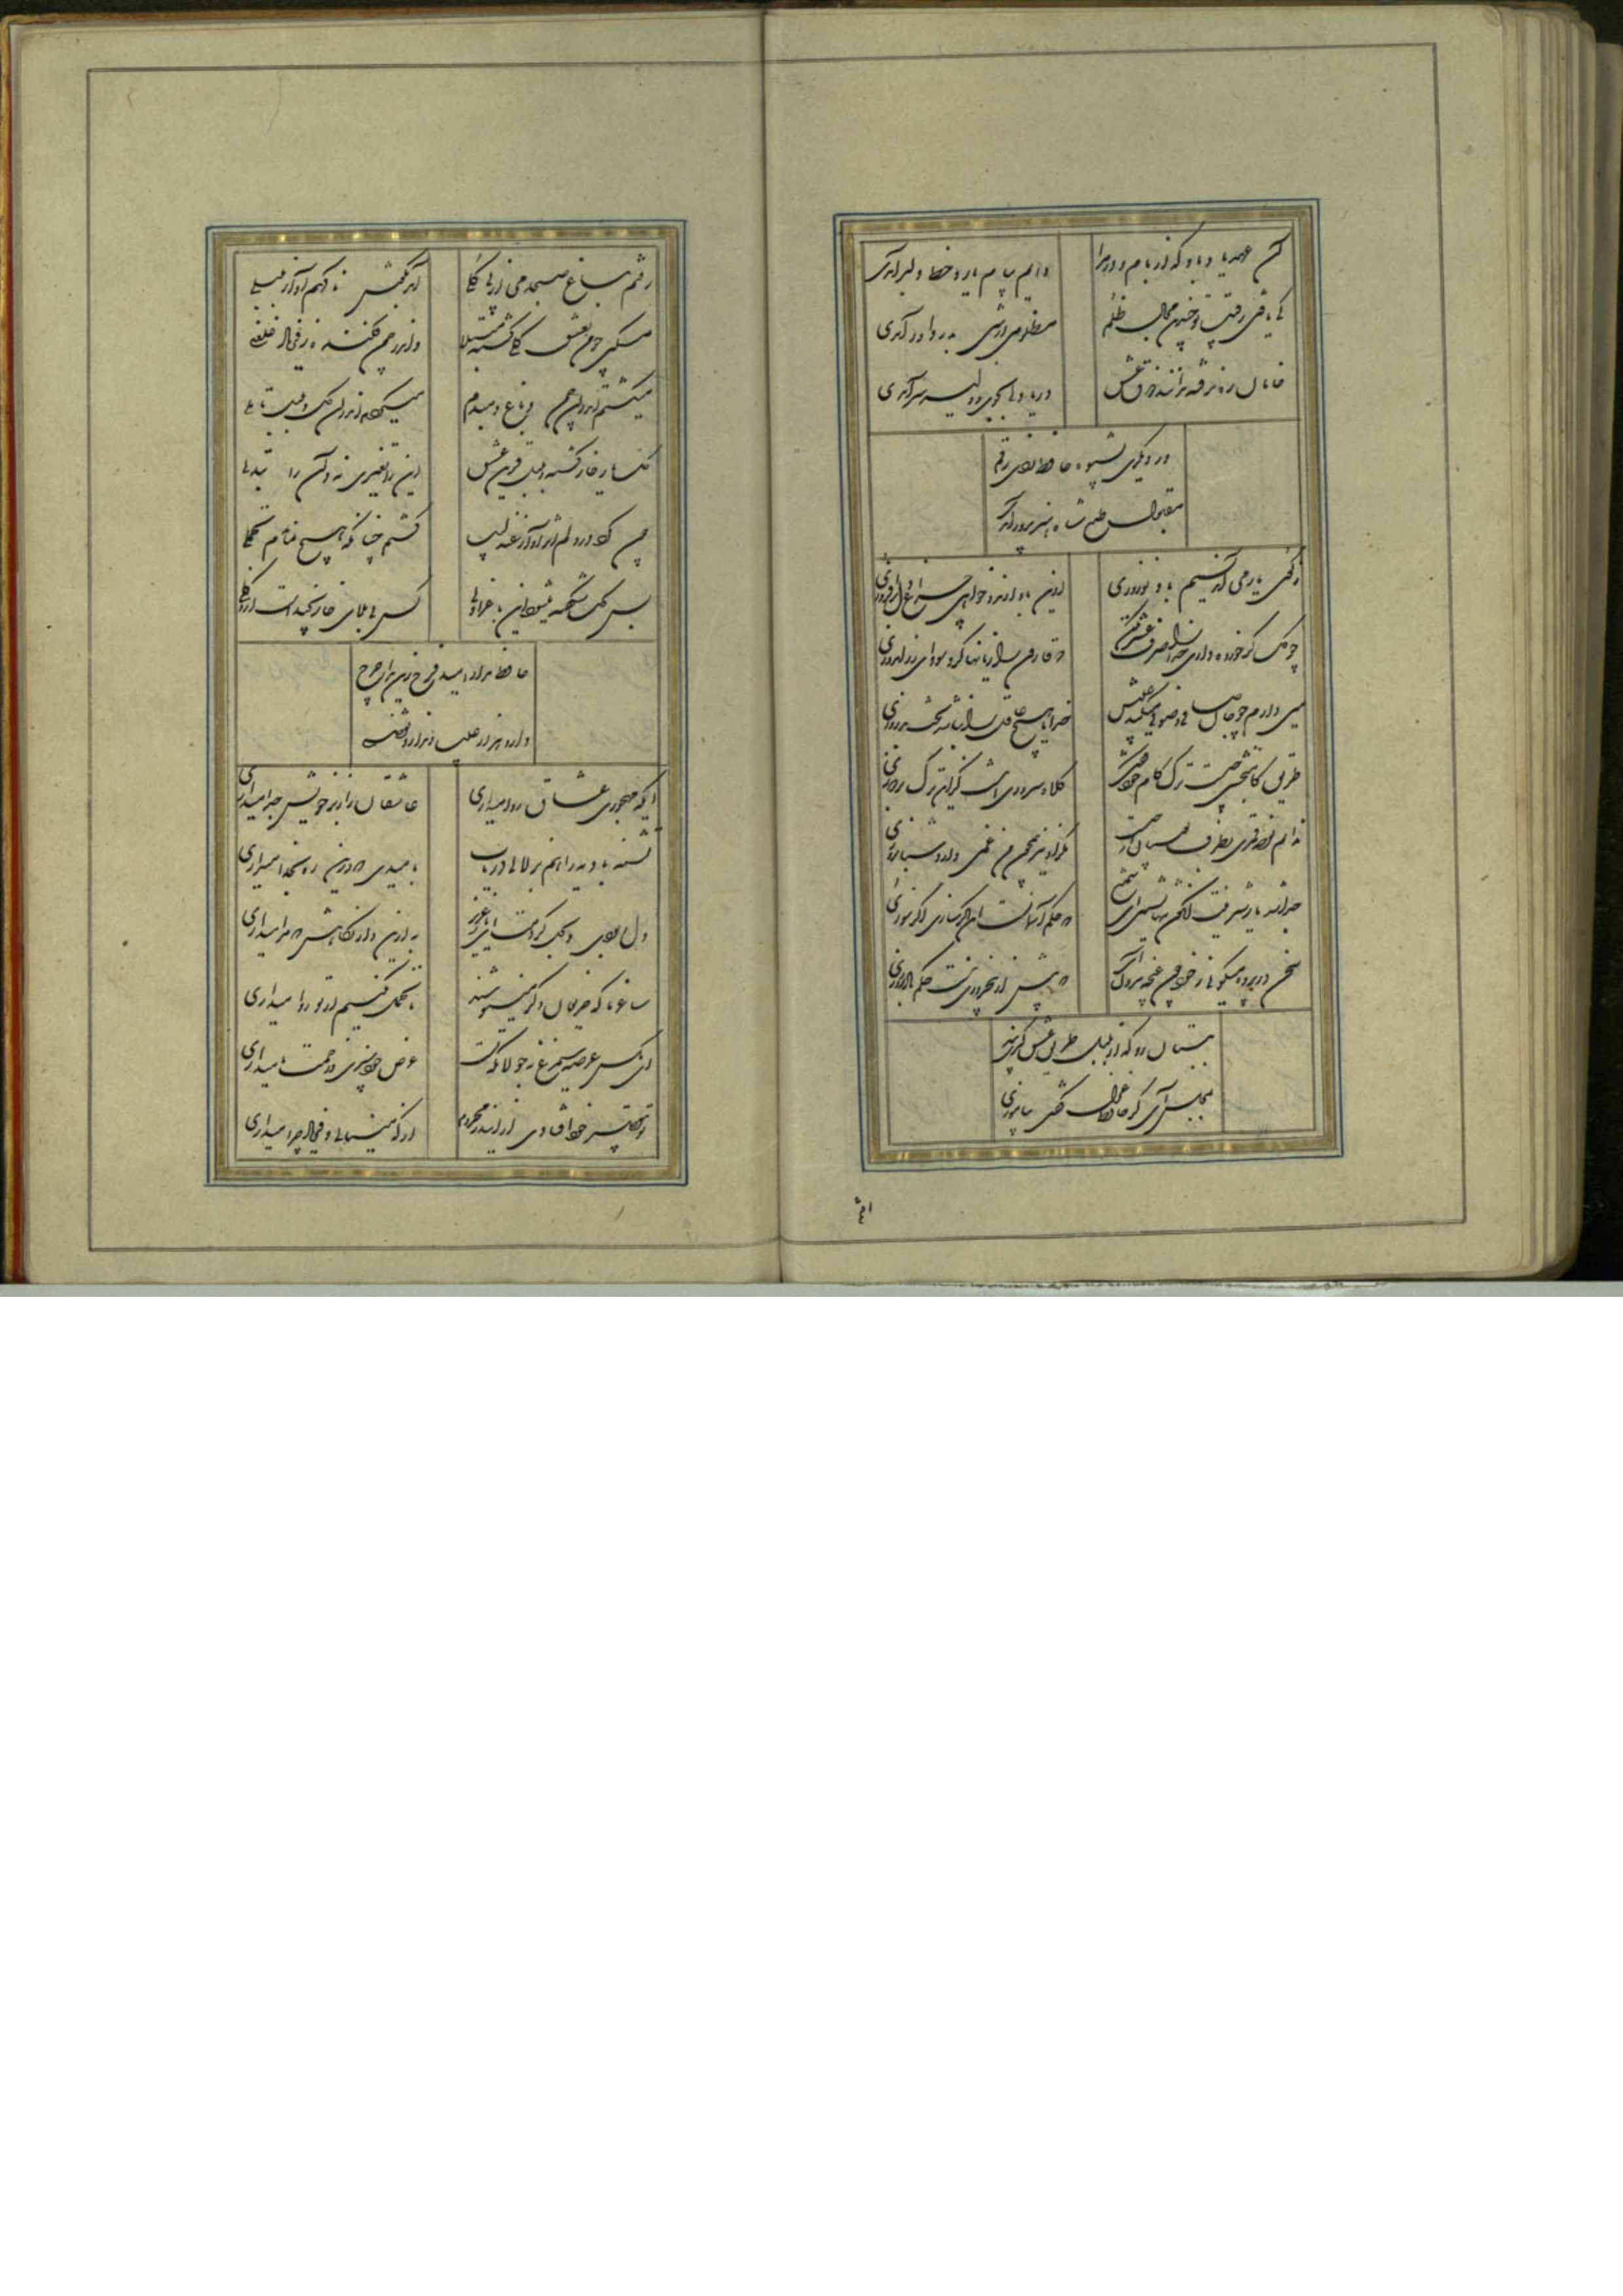 آن عهد یاد باد که از بام و در مرا
دایم پیام یار و خط دلبر آمدی
کی یافتی رقیب تو چندین مجال ظلم
مظلومی ار شبی به در داور آمدی
خامان ره نرفته چه دانند ذوق عشق
دریادلی بجوی دلیری سرآمدی
ور دیگری بشیوه حافظ زدی رقم
مقبول طبع شاه هنرپرور آمدی
ز کوی یار می آید نسیم باد نوروزی
ازین باد ار مدد خواهی چراغ دل برافروزی
چو گل گر خرده داری خدا را صرف عشرت کن
که قارون را زیانها کرد سودای زراندوزی
می دارم چو جان صافی و صوفی میکند عیبش
خدایا هیچ عاقل را مبادا بخت بد روزی
طریق کام بخشی چیست ترک کام خود کردن
کلاه سروری آنست کز این ترک بردوزی
ندانم نوحه قمری بطرف جویباران چیست
مگر او نیز همچون من غمی دارد شبانروزی
جدا شد یار شیرینت کنون تنها نشین ای شمع
که حکم آسمان اینست اگر سازی اگر سوزی
سخن در پرده میگویم ز خود چون غنچه بیرون آی
که بیش از پنج روزی نیست حکم میر نوروزی
ببستان رو که از بلبل طریق عشق گیری یاد
بمجلس آی کز حافظ غزل گفتن بیاموزی
رفتم بباغ صبحدمی از پی گلی
آمد بگوش ناگهم آواز بلبلی
مسکین چو من بعشق گلی گشته مبتلا
و اندر چمن فکنده ز فریاد غلغلی
میگشتم اندر آن چمن و باغ دمبدم
میکردم اندر آن گل و بلبل تاملی
گل یار خار گشته و بلبل قرین عشق
این را تغیری نه و آن را تبدلی
چون کرد در دلم اثر آواز عندلیب
گشتم چنان که هیچ نماندم تحملی
بس گل شکفته میشود این باغ را ولی
کس بی بلای خار نچیدست ازو گلی
حافظ مدار امید فرح زین مدار چرخ
دارد هزار عیب و ندارد تفضلی
ایکه مهجوری عشاق روا میداری
عاشقان را ز بر خویش جدا میداری
تشنه بادیه را هم بزلالی دریاب
بامیدی که درین ره بخدا میداری
دل ببردی و بحل کردمت ای جان عزیز
به ازین دار نگاهش که مرا میداری
ساغر ما که حریفان دگر مینوشند
ما تحمل نکنیم ار تو روا میداری
ای مگس عرصه سیمرغ نه جولانگه تست
عرض خود میبری و زحمت ما میداری
تو بتقصیر خود افتادی ازین در محروم
از که مینالی و فریاد چرا میداری